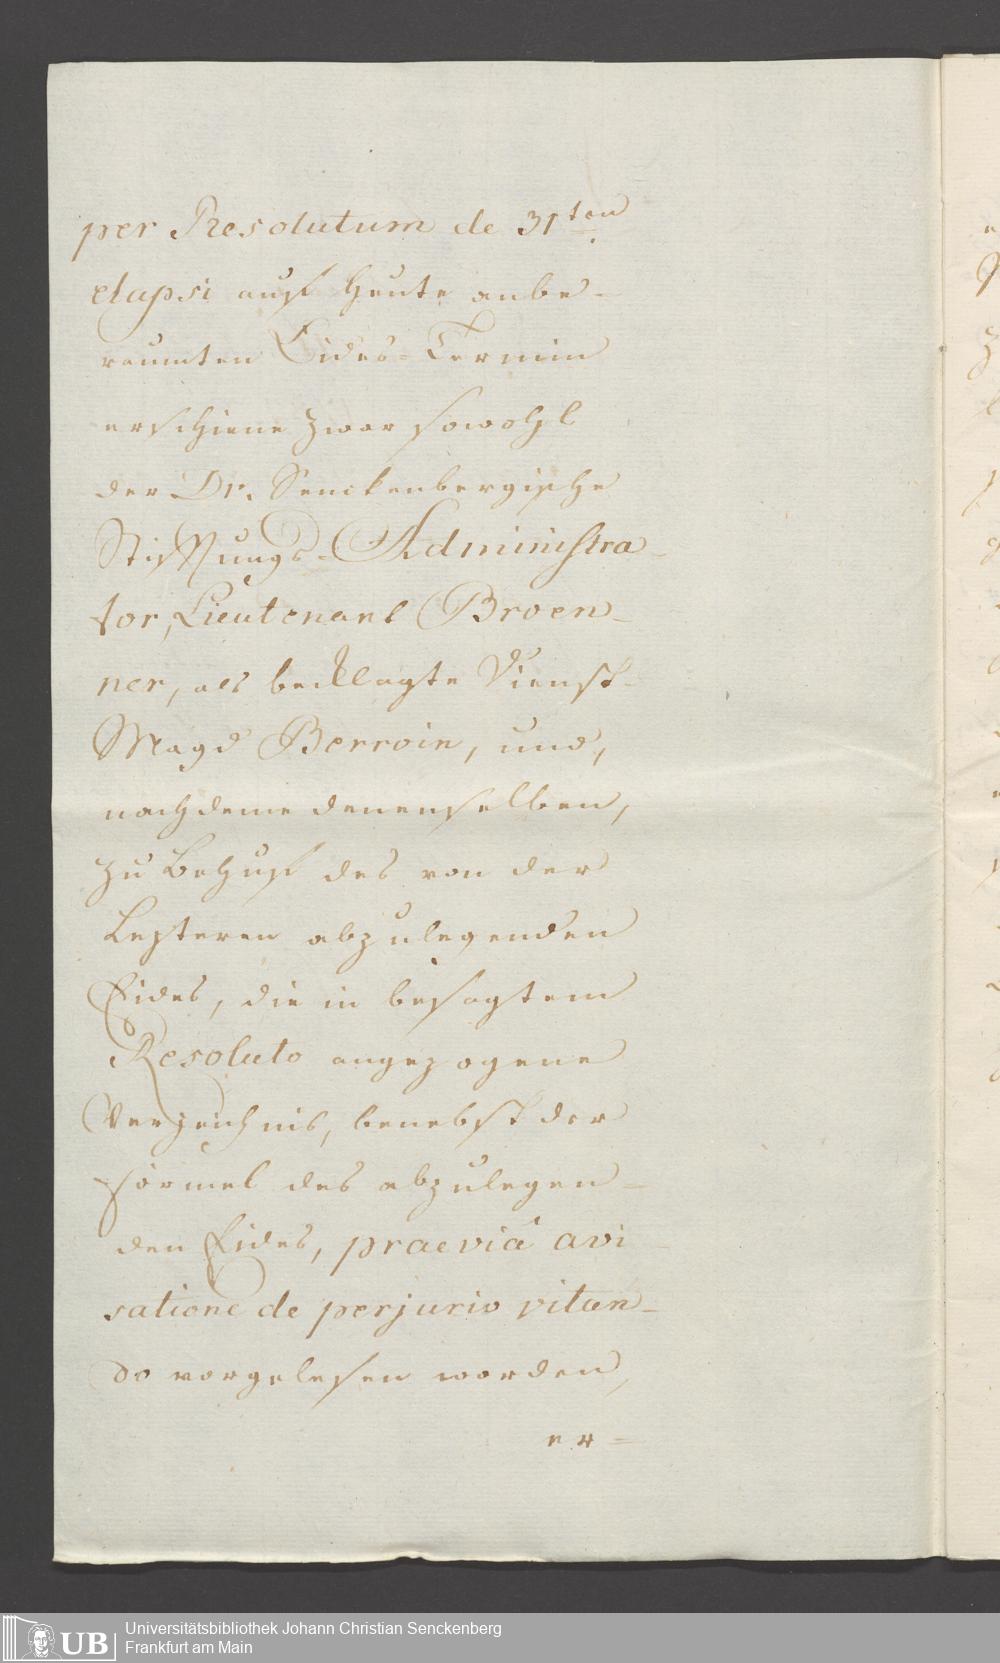 per Resolutum de 31ten
elapsi auf heute anbe-
raumten Eides-Termin
erschiene zwar sowohl
der Dr. Senckenbergische
Stiftungs-Administra-
tor, Lieutenant Broen-
ner, als beklagte Dienst-
Magd Berroin, und,
nachdeme denenselben,
zu Behuf des von der
Lezteren abzulegenden
Eides, die in besagtem
Resoluto angezogene
Verzeichnis, benebst der
Formel des abzulegen-
den Eides, praeviâ avi-
satione de perjurio vitan-
do vorgelesen worden,
er-
UB
Universitätsbibliothek Johann Christian Senckenberg
Frankfurt am Main